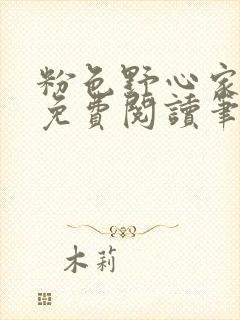 粉色野心家
免費閱讀筆
木莉